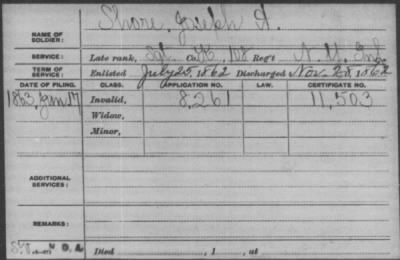 NAME OF SOLDIER: Shore, Joseph A.
SERVICE: Late rank, Sgt. Co. K, 108 Reg't N. Y. Inf.
TERM OF SERVICE: Enlisted July 25, 1862 Discharged Nov. 28, 1862
DATE OF FILING. CLASS. APPLICATION NO. LAW. CERTIFICATE NO.
1863, Jan 17 Invalid, 8,261 11,503
Widow,
Minor,
ADDITIONAL SERVICES:
REMARKS:
Died , 1 , at